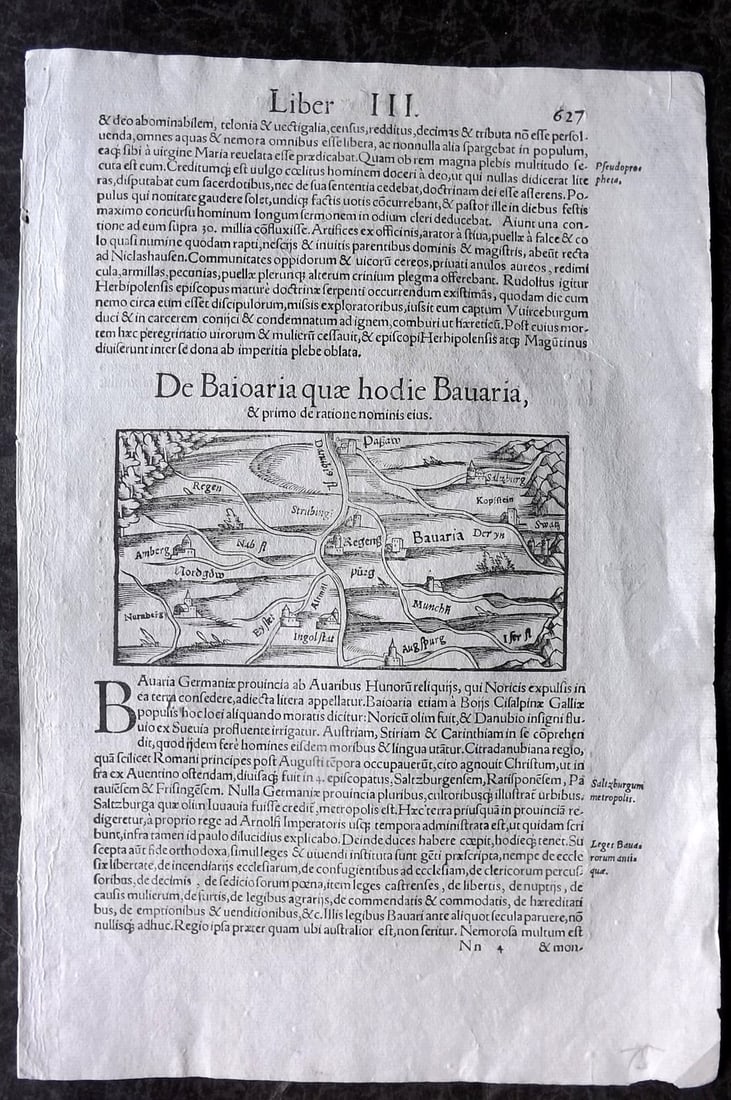 Liber III. 627
& deo abominabilem, telonia & uectigalia, census, redditus, decimas & tributa nō esse persol-
uenda, omnes aquas & nemora omnibus esse libera, ac nonnulla alia spargebat in populum,
eaq́ sibi à uirgine Maria reuelata esse prædicabat. Quam ob rem magna plebis multitudo se-
cuta est eum. Creditumq́ est uulgo cœlitus hominem doceri à deo, ut qui nullas didicerat lite
Pseudopro=
pheta,
ras, disputabat cum sacerdotibus, nec de sua sententia cedebat, doctrinam dei esse asserens. Po-
pulus qui nouitate gaudere solet, undiq́ factis uotis cōcurrebant, & pastor ille in diebus festis
maximo concursu hominum longum sermonem in odium cleri deducebat. Aiunt una con-
tione ad eum supra 30. millia cōfluxisse. Artifices ex officinis, arator à stiua, puellæ à falce & co
lo quasi numine quodam rapti, nescijs & inuitis parentibus dominis & magistris, abeūt recta
ad Niclashausen. Communitates oppidorum & uicorū cereos, priuati anulos aureos, redimi
cula, armillas, pecunias, puellæ plerunq́ alterum crinium plegma offerebant. Rudolfus igitur
Herbipolensis episcopus maturè doctrinæ serpenti occurrendum existimās, quodam die cum
nemo circa eum esset discipulorum, missis exploratoribus, iussit eum captum Vuirceburgum
duci & in carcerem conijci & condemnatum ad ignem, comburi ut hæreticū. Post cuius mor-
tem hæc peregrinatio uirorum & mulierū cessauit, & episcopi Herbipolensis atq́ Magūtinus
diuiserunt inter se dona ab imperitia plebe oblata.
De Baioaria quæ hodie Bauaria,
& primo de ratione nominis eius.
Danubiꝰ fl.
Paßaw
Regen
Saltzburg
Kopfstein
Strubing
Swatz
Amberg
Nab fl
Regens
Bauaria
Der yn
Nordgöw
purg
Nurnberg
Altmül
Munchē
Eystet
Ingolstat
Augspurg
Iser fl
BAuaria Germaniæ prouincia ab Auaribus Hunorū reliquijs, qui Noricis expulsis in
ea terra consedere, adiecta litera appellatur. Baioaria etiam à Boijs Cisalpinæ Galliæ
populis hoc loci aliquando moratis dicitur: Noricū olim fuit, & Danubio insigni flu-
uio ex Sueuia profluente irrigatur. Austriam, Stiriam & Carinthiam in se cōprehen
dit, quod ijdem ferè homines eisdem moribus & lingua utātur. Citradanubiana regio,
quā scilicet Romani principes post Augusti tēpora occupauerūt, cito agnouit Christum, ut in
fra ex Auentino ostendam, diuisaq́ fuit in 4. episcopatus, Saltzburgensem, Ratisponēsem, Pa
tauiēsem & Frisingēsem. Nulla Germaniæ prouincia pluribus, cultioribusq́ illustrat́ urbibus.
Saltzburgum
metropolis.
Saltzburga quæ olim Iuuauia fuisse credit́, metropolis est. Hæc terra priusquā in prouinciā re-
digeretur, à proprio rege ad Arnolfi Imperatoris usq́ tempora administrata est, ut quidam scri
bunt, infra tamen id paulo dilucidius explicabo. Deinde duces habere cœpit, hodieq́ tenet. Su
scepta aūt fide orthodoxa, simul leges & uiuendi instituta sunt gēti præscripta, nempe de eccle
Leges Baua=
rorum anti=
quæ.
siæ libertate, de incendiarijs ecclesiarum, de confugientibus ad ecclesiam, de clericorum percus
soribus, de decimis, de sediciosorum pœna, item leges castrenses, de libertis, de nuptijs, de
causis mulierum, de furtis, de legibus agrarijs, de commendatis & commodatis, de hæreditati
bus, de emptionibus & uenditionibus, &c. Illis legibus Bauari ante aliquot secula paruere, nō
nullisq́ adhuc. Regio ipsa præter quam ubi australior est, non seritur. Nemorosa multum est
Nn 4 & mon-